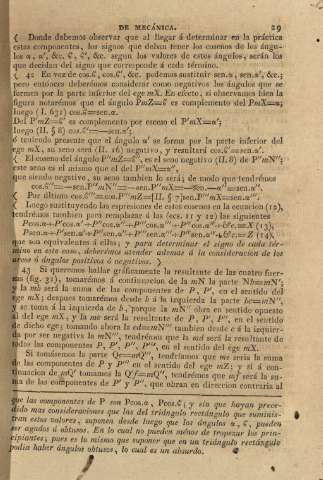 DE MECÁNICA. 29
{ Donde debemos observar que al llegar á determinar en la práctica
estos componentes, los signos que deban tener los cosenos de los ángu-
los α, α', &c. ϐ, ϐ', &c. segun los valores de estos ángulos, serán los
que decidan del signo que corresponde á cada término.
{ 42 En vez de cos.ϐ, cos.ϐ', &c. podemos sustituir sen.α, sen.α', &c.;
pero entónces deberémos considerar como negativos los ángulos que se
formen por la parte inferior del ege mX. En efecto, si observamos bien la
figura notarémos que el ángulo PmZ=ϐ es complemento del PmX=α;
luego (I. 631) cos.ϐ=sen.α.
Del P'mZ=ϐ' es complemento por esceso el P'mX=α';
luego (II. § 8) cos.ϐ'=−sen.α';
ó teniendo presente que el ángulo α' se forma por la parte inferior del
ege mX, su seno será (II. 16) negativo, y resultará cos.ϐ'=sen.α'.
{ El coseno del ángulo P''mZ=ϐ'', es el seno negativo (II. 8) de P''mN'';
este seno es el mismo que el del P''mX=α'',
que siendo negativo, su seno tambien lo será; de modo que tendrémos
cos.ϐ''=−sen.P''mN''=−sen.P''mX=−×−sen.α''=sen.α''.
{ Por último cos.ϐ'''=cos.P'''mZ=[II. § 7]sen.P'''mX=sen.α'''.
{ Luego sustituyendo las espresiones de estos cosenos en la ecuacion (12),
tendrémos tambien para remplazar á las (ecs. 11 y 12) las siguientes
Pcos.α+P'cos.α'+P''cos.α''+P'''cos.α'''+&c.=X (13),
Psen.α+P'sen.α'+P''sen.α''+P'''sen.α'''+&c.=Z (14),
que son equivalentes á ellas; y para determinar el signo de cada tér-
mino en este caso, deberémos atender ademas á la consideracion de los
arcos ó ángulos positivos ó negativos. }
43 Si queremos hallar gráficamente la resultante de las cuatro fuer-
zas (fig. 31), tomarémos á continuacion de la mN la parte Nb=mN',
y la mb será la suma de las componentes de P, P', en el sentido del
ege mX; despues tomarémos desde b á la izquierda la parte bc=mN'',
y se toma á la izquierda de b, porque la mN'' obra en sentido opuesto
al del ege mX, y la mc será la resultante de P, P', P'', en el sentido
de dicho ege; tomando ahora la cd=mN''' tambien desde c á la izquier-
da por ser negativa la mN''', tendrémos que la md será la resultante de
todos los componentes P, P', P'', P''', en el sentido del ege mX.
Si tomásemos la parte Qe=mQ''', tendriamos que me seria la suma
de las componentes de P y P''' en el sentido del ege mZ; y si á con-
tinuacion de mQ' tomamos la Q'f=mQ'', tendrémos que mf será la su-
ma de las componentes de P' y P'', que obran en direccion contraria al
que las componentes de P son Pcos.α, Pcos.ϐ; y sin que hayan prece-
dido mas consideraciones que las del triángulo rectángulo que suminis-
tran estos valores, suponen desde luego que los ángulos α, ϐ, pueden
ser agudos ú obtusos. En lo cual no pueden ménos de tropezar los prin-
cipiantes; pues es lo mismo que suponer que en un triángulo rectángulo
podia haber ángulos obtusos, lo cual es un absurdo.